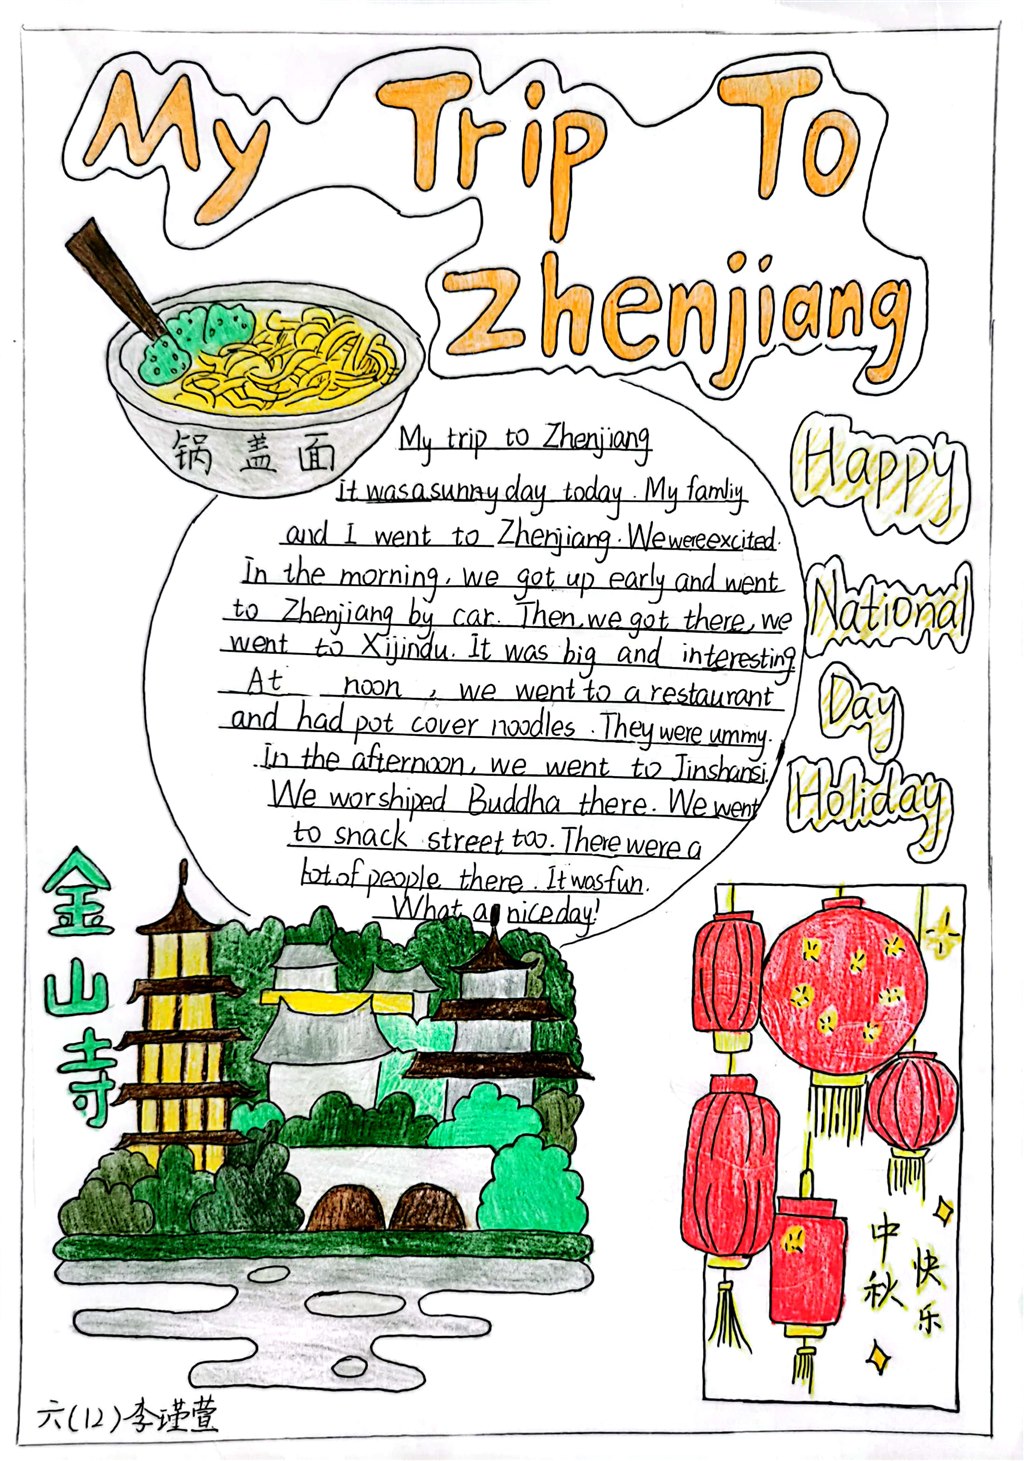 My Trip To
Zhenjiang
锅盖面
My trip to Zhenjiang
it was a sunny day today. My famliy
and I went to Zhenjiang. We were excited.
In the morning, we got up early and went
to Zhenjiang by car. Then, we got there, we
went to Xijindu. It was big and interesting.
At noon, we went to a restaurant
and had pot cover noodles. They were ummy.
In the afternoon, we went to Jinshansi.
We worshiped Buddha there. We went
to snack street too. There were a
lot of people there. It was fun.
What a nice day!
Happy
National
Day
Holiday
金山寺
中秋
快乐
六(12)李瑾萱